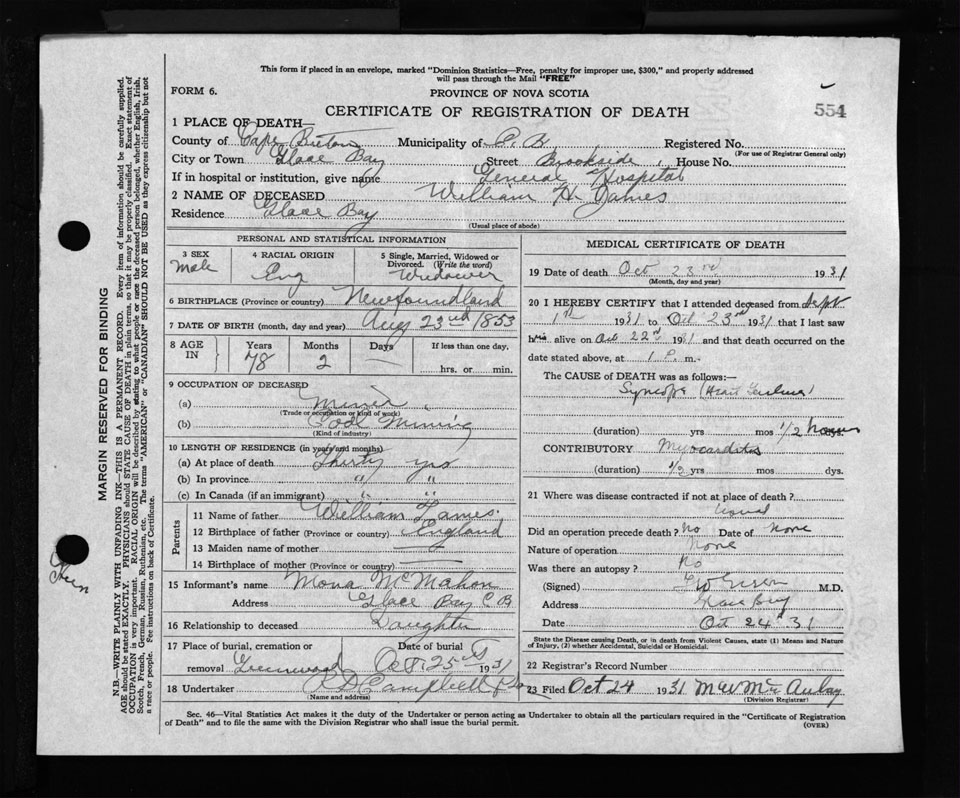 This form if placed in an envelope, marked "Dominion Statistics—Free, penalty for improper use, $300," and properly addressed
will pass through the Mail "FREE"
FORM 6.
PROVINCE OF NOVA SCOTIA
CERTIFICATE OF REGISTRATION OF DEATH
554
1 PLACE OF DEATH—
County of Cape Breton Municipality of C. B. Registered No.
(For use of Registrar General only)
City or Town Glace Bay Street Brookside House No.
If in hospital or institution, give name General Hospital
2 NAME OF DECEASED William H. James
Residence Glace Bay
(Usual place of abode)
PERSONAL AND STATISTICAL INFORMATION
3 SEX Male
4 RACIAL ORIGIN Eng
5 Single, Married, Widowed or Divorced. (Write the word) Widower
6 BIRTHPLACE (Province or country) Newfoundland
7 DATE OF BIRTH (month, day and year) Aug 23rd 1853
8 AGE IN Years Months Days If less than one day,
78 2 — hrs. or min.
9 OCCUPATION OF DECEASED
(a) Miner
(Trade or occupation or kind of work)
(b) Coal Mining
(Kind of industry)
10 LENGTH OF RESIDENCE (in years and months)
(a) At place of death Thirty yrs
(b) In province " "
(c) In Canada (if an immigrant) " "
Parents
11 Name of father William James
12 Birthplace of father (Province or country) England
13 Maiden name of mother —
14 Birthplace of mother (Province or country) —
15 Informant's name Mona McMahon
Address Glace Bay C B
16 Relationship to deceased Daughter
17 Place of burial, cremation or removal Greenwood
Date of burial Oct. 25th 1931
18 Undertaker Campbell
(Name and address)
MEDICAL CERTIFICATE OF DEATH
19 Date of death Oct 23rd 1931
(Month, day and year)
20 I HEREBY CERTIFY that I attended deceased from Sept
1st 1931 to Oct 23rd 1931 that I last saw
him alive on Oct 22nd 1931 and that death occurred on the
date stated above, at 1 P. m.
The CAUSE OF DEATH was as follows:—
Syncope (Heart Failure)
(duration) yrs mos 1/2 hours
CONTRIBUTORY Myocarditis
(duration) 1/2 yrs mos dys.
21 Where was disease contracted if not at place of death?
Did an operation precede death? No Date of None
Nature of operation None
Was there an autopsy? No
(Signed) M.D.
Address Glace Bay
Date Oct 24 31
State the Disease causing Death, or in death from Violent Causes, state (1) Means and Nature
of Injury, (2) whether Accidental, Suicidal or Homicidal.
22 Registrar's Record Number
23 Filed Oct 24 1931
(Division Registrar)
Sec. 46—Vital Statistics Act makes it the duty of the Undertaker or person acting as Undertaker to obtain all the particulars required in the "Certificate of Registration
of Death" and to file the same with the Division Registrar who shall issue the burial permit.
(OVER)
MARGIN RESERVED FOR BINDING
N.B.—WRITE PLAINLY WITH UNFADING INK—THIS IS A PERMANENT RECORD. Every item of information should be carefully supplied.
AGE should be stated EXACTLY. PHYSICIANS should STATE CAUSE OF DEATH in plain terms, so that it may be properly classified. Exact statement of
OCCUPATION is very important. RACIAL ORIGIN will be described by stating to what people or race the deceased person belonged, whether English, Irish,
Scotch, French, German, Russian, Ruthenian, etc. The terms "AMERICAN" or "CANADIAN" SHOULD NOT BE USED as they express citizenship but not
a race or people. See instructions on back of Certificate.